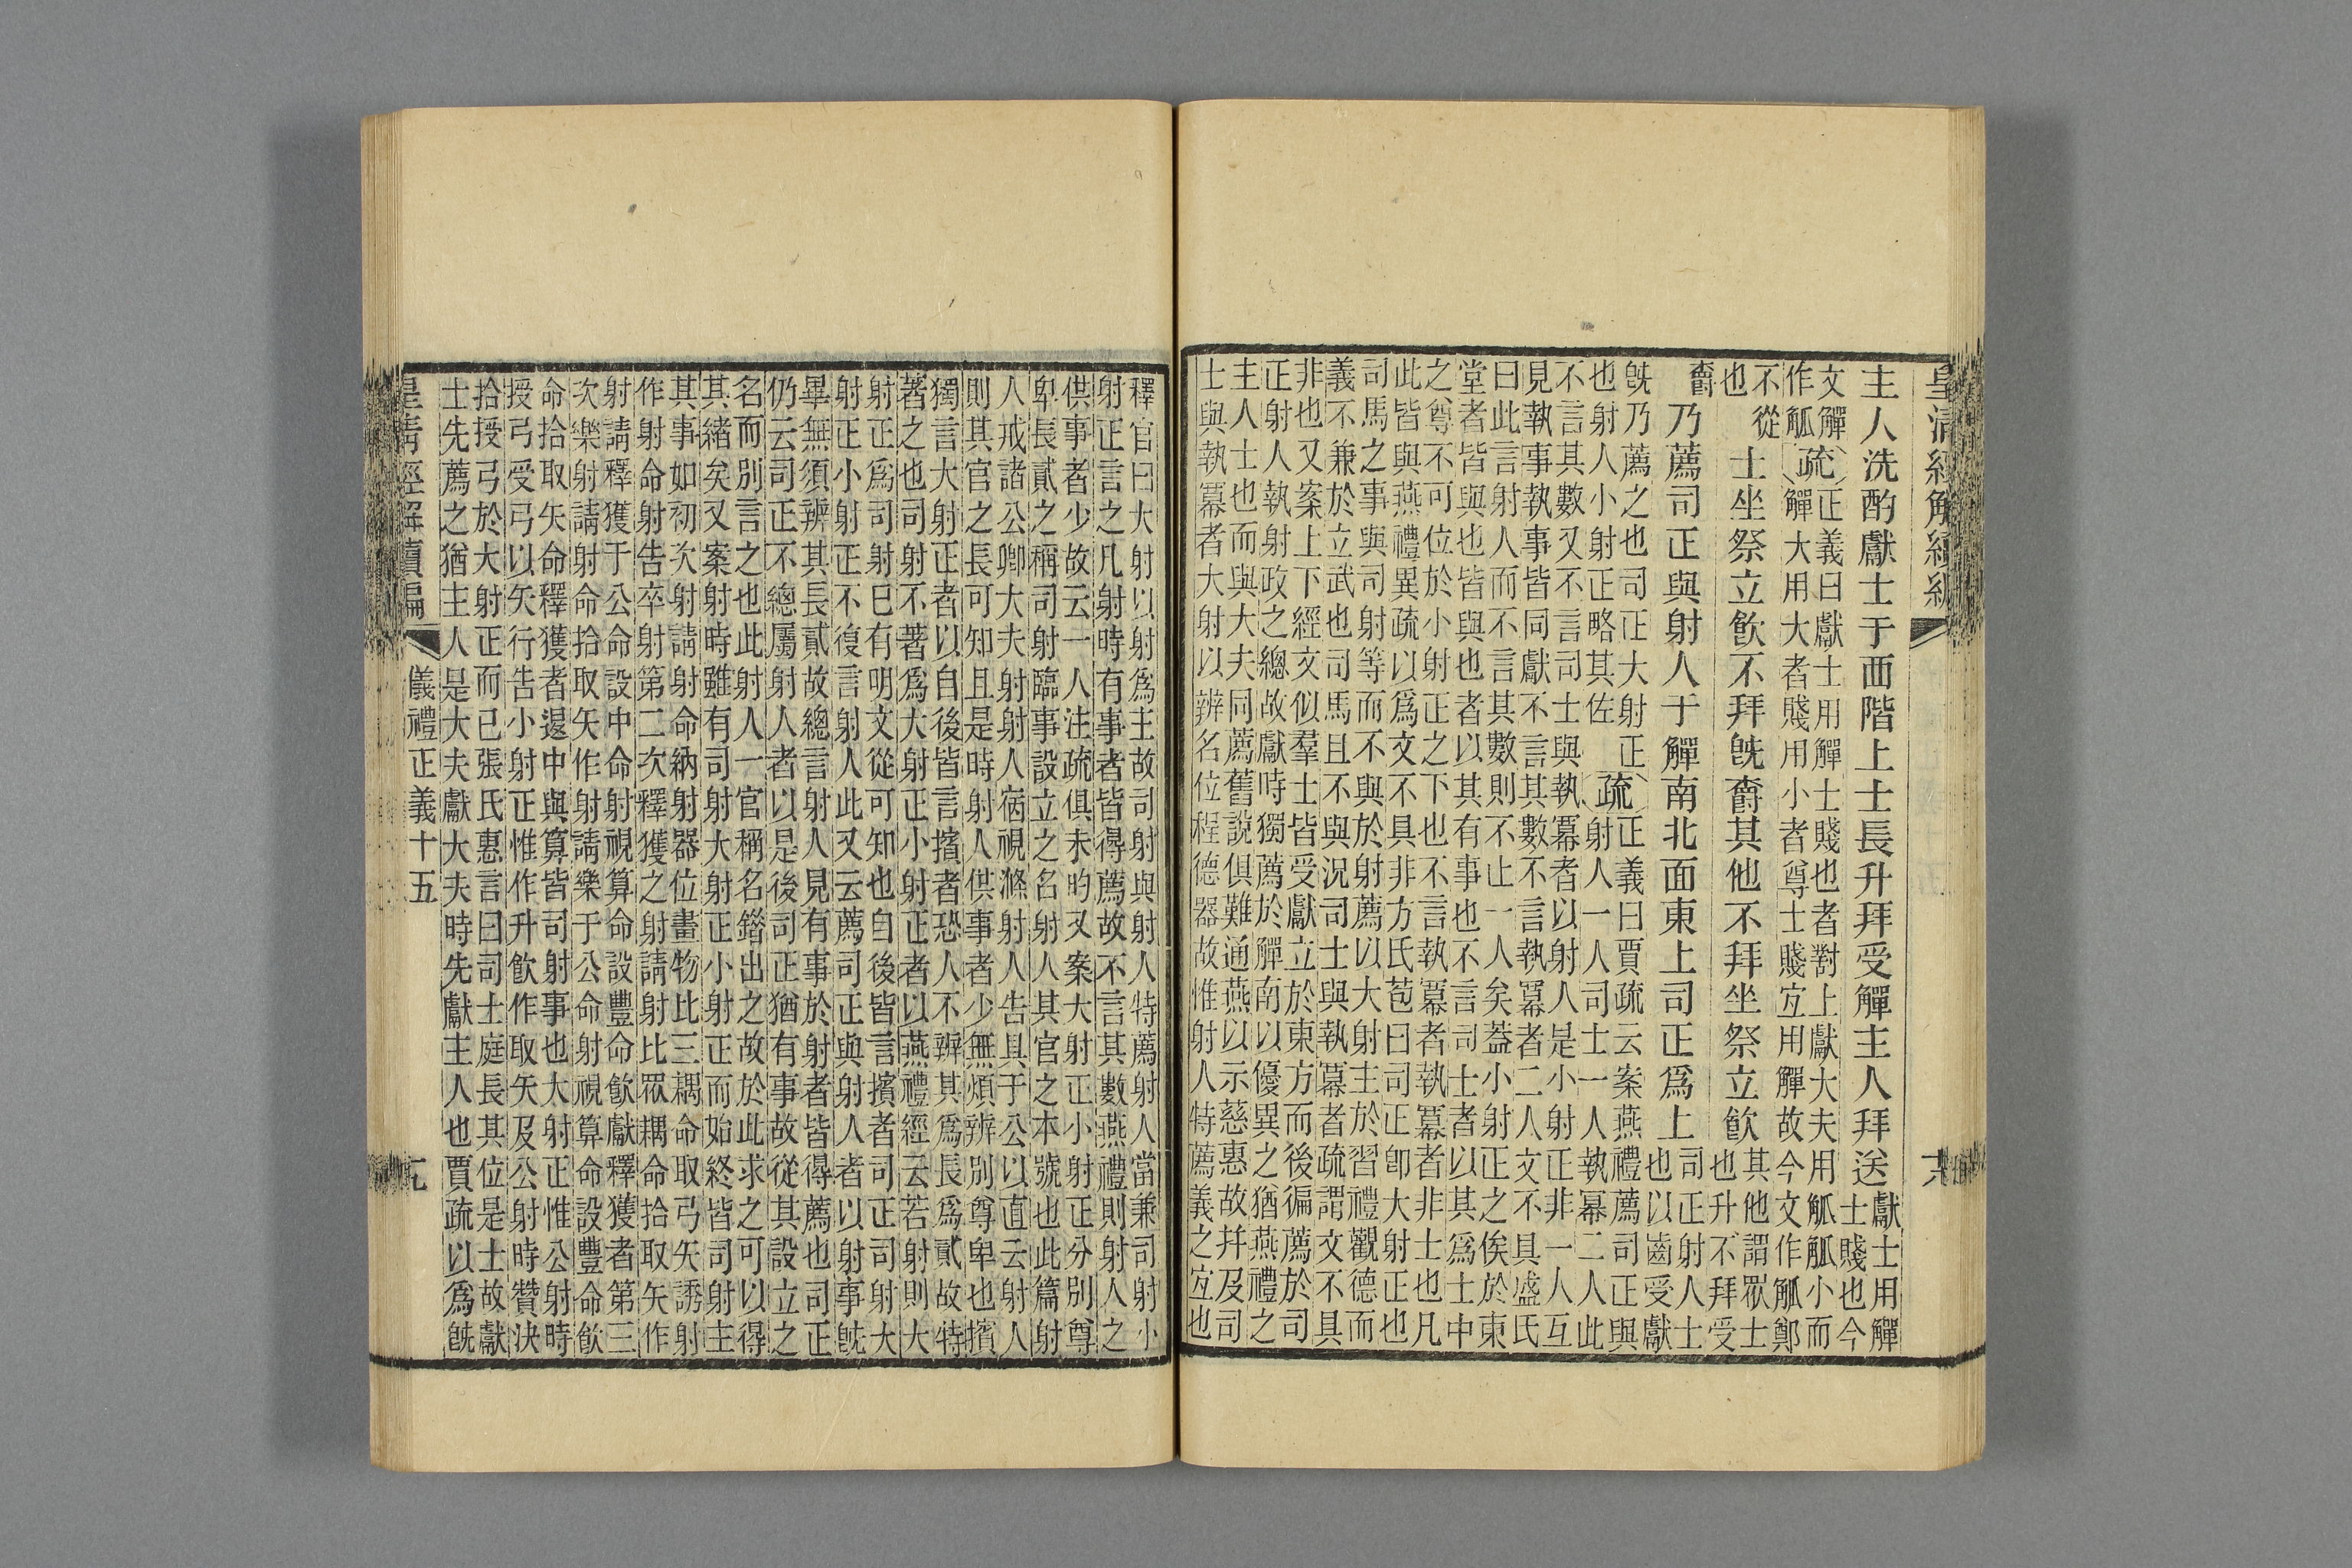 皇清經解續編
主人洗酌獻士于西階上士長升拜受觶主人拜送
獻士用觶
士賤也今
文觶
作觚
疏
正義曰獻士用觶士賤也者對上獻大夫用觚觚小而
觶大用大者賤用小者尊士賤宜用觶故今文作觚鄭
不從
也
士坐祭立飲不拜既爵其他不拜坐祭立飲
其他謂眾士
也升不拜受
爵
乃薦司正與射人于觶南北面東上司正爲上
司正射人士
也以齒受獻
既乃薦之也司正大射正
也射人小射正略其佐
疏
正義曰賈疏云案燕禮薦司正與
射人一人司士一人執冪二人此
不言其數又不言司士與執冪者以射人是小射正非一人互
見執事執事皆同獻不言其數不言執冪者二人文不具盛氏
曰此言射人而不言其數則不止一人矣蓋小射正之俟於東
堂者皆與也皆與也者以其有事也不言司士者以其爲士中
之尊不可位於小射正之下也不言執冪者執冪者非士也凡
此皆與燕禮異疏以爲文不具非方氏苞曰司正即大射正也
司馬之事與司射等而不與於射薦以大射主於習禮觀德而
義不兼於立武也司馬且不與況司士與執冪者疏謂文不具
非也又案上下經文似羣士皆受獻立於東方而後徧薦於司
正射人執射政之總故獻時獨薦於觶南以優異之猶燕禮之
主人士也而與大夫同薦舊說俱難通燕以示慈惠故并及司
士與執冪者大射以辨名位程德器故惟射人特薦義之宜也
釋官曰大射以射爲主故司射與射人特薦射人當兼司射小
射正言之凡射時有事者皆得薦故不言其數燕禮則射人之
供事者少故云一人注疏俱未昀又案大射正小射正分別尊
卑長貳之稱司射臨事設立之名射人其官之本號也此篇射
人戒諸公卿大夫射射人宿視滌射人告具于公以直云射人
則其官之長可知且是時射人供事者少無煩辨別尊卑也擯
獨言大射正者以自後皆言擯者恐人不辨其爲長爲貳故特
著之也司射不著爲大射正小射正者以燕禮經云若射則大
射正爲司射已有明文從可知也自後皆言擯者司正司射大
射正小射正不復言射人此又云薦司正與射人者以射事既
畢無須辨其長貳故總言射人見有事於射者皆得薦也司正
仍云司正不總屬射人者以是後司正猶有事故從其設立之
名而別言之也此射人一官稱名錯出之故於此求之可以得
其緒矣又案射時雖有司射大射正小射正而始終皆司射主
其事如初次射請射命納射器位畫物比三耦命取弓矢誘射
作射命射告卒射第二次釋獲之射請射比眾耦命拾取矢作
射請釋獲于公命設中命射視算命設豐命飲獻釋獲者第三
次樂射請射命拾取矢作射請樂于公命射視算命設豐命飲
命拾取矢命釋獲者退中與算皆司射事也大射正惟公射時
授弓受弓以矢行告小射正惟作升飲作取矢及公射時贊決
拾授弓於大射正而己張氏惠言曰司士庭長其位是士故獻
士先薦之猶主人是大夫獻大夫時先獻主人也賈疏以爲既
皇清經解續編 儀禮正義十五